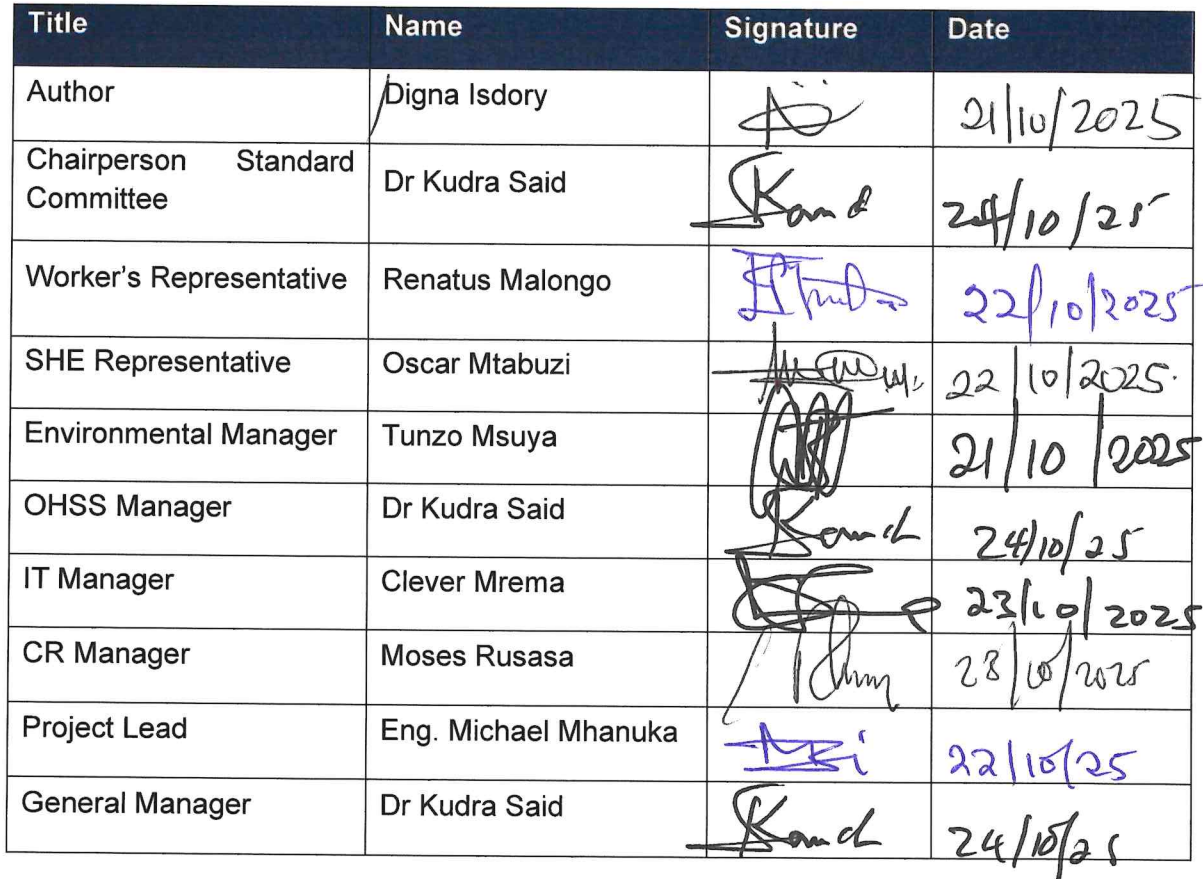 Title Name Signature Date
Author Digna Isdory 21/10/2025
Chairperson Standard
Committee Dr Kudra Said 24/10/25
Worker's Representative Renatus Malongo 22/10/2025
SHE Representative Oscar Mtabuzi 22/10/2025.
Environmental Manager Tunzo Msuya 21/10/2025
OHSS Manager Dr Kudra Said 24/10/25
IT Manager Clever Mrema 23/10/2025
CR Manager Moses Rusasa 23/10/2025
Project Lead Eng. Michael Mhanuka 22/10/25
General Manager Dr Kudra Said 24/10/25